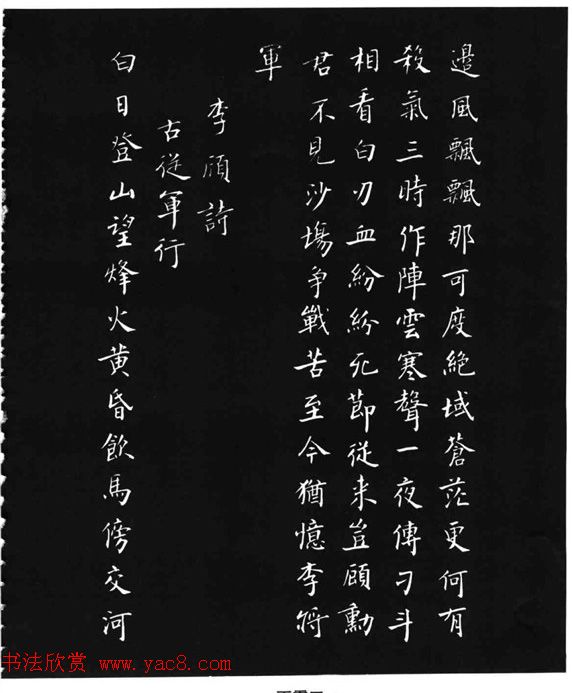 邊風飄飄那可度絕域蒼茫更何有
殺氣三時作陣雲寒聲一夜傳刁斗
相看白刃血紛紛死節從来豈顧勳
君不見沙塲爭戰苦至今猶憶李將
軍
李頎詩
古從軍行
白日登山望烽火黄昏飲馬傍交河
书法欣赏 www.yac8.com